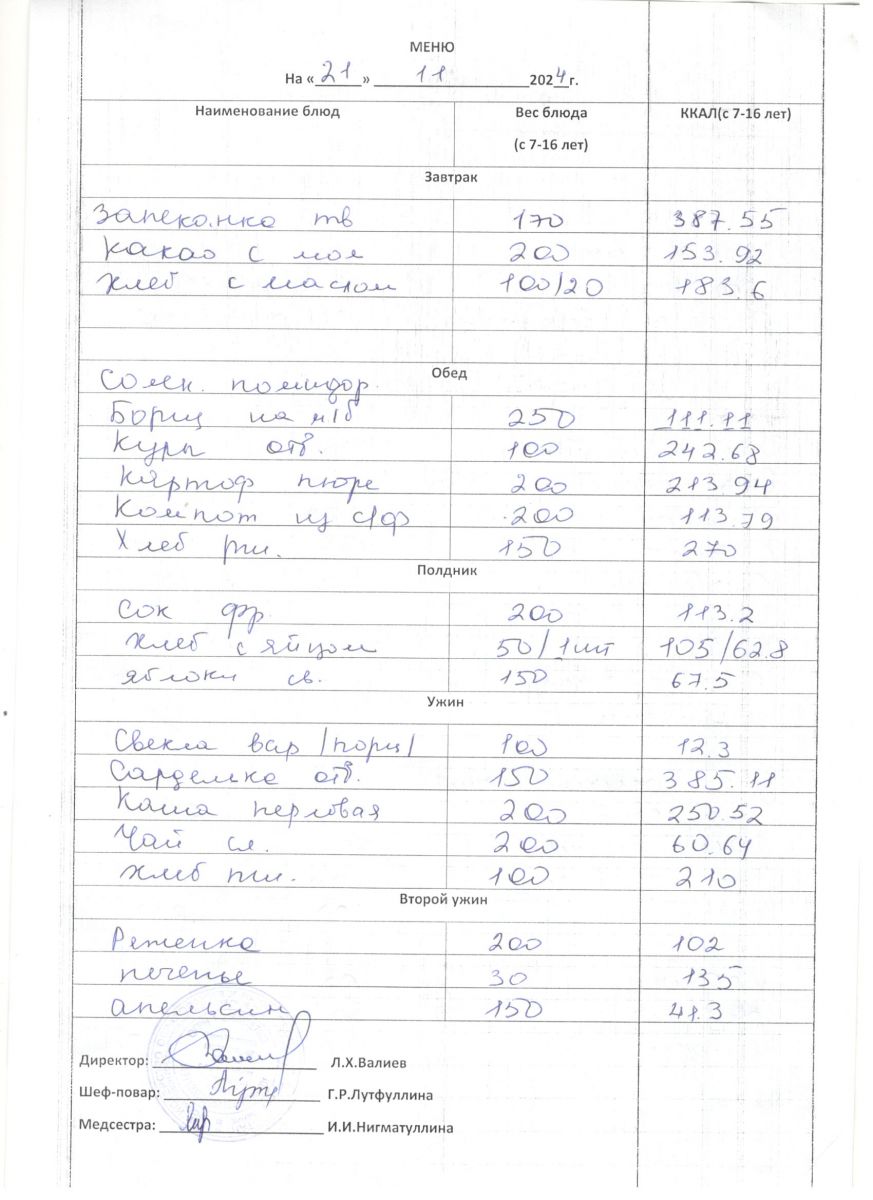 МЕНЮ
На «21» 11 2024г.
Наименование блюд Вес блюда (с 7-16 лет) ККАЛ(с 7-16 лет)
Завтрак
Запеканка тв 170 387.55
Какао с мол 200 153.92
Хлеб с маслом 100/20 183.6
Обед
Солен. помидор.
Борщ на м/б 250 111.11
Куры отв. 100 242.68
Картоф пюре 200 213.94
Компот из с/ф 200 113.79
Хлеб рж. 150 270
Полдник
Сок фр. 200 113.2
Хлеб с яйцом 50/1шт 105/62.8
яблоки св. 150 67.5
Ужин
Свекла вар /порц/ 100 12.3
Сарделька отв. 150 385.11
Каша перловая 200 250.52
Чай сл. 200 60.64
Хлеб пш. 100 210
Второй ужин
Ряженка 200 102
печенье 30 135
апельсин 150 41.3
Директор: Л.Х.Валиев
Шеф-повар: Г.Р.Лутфуллина
Медсестра: И.И.Нигматуллина